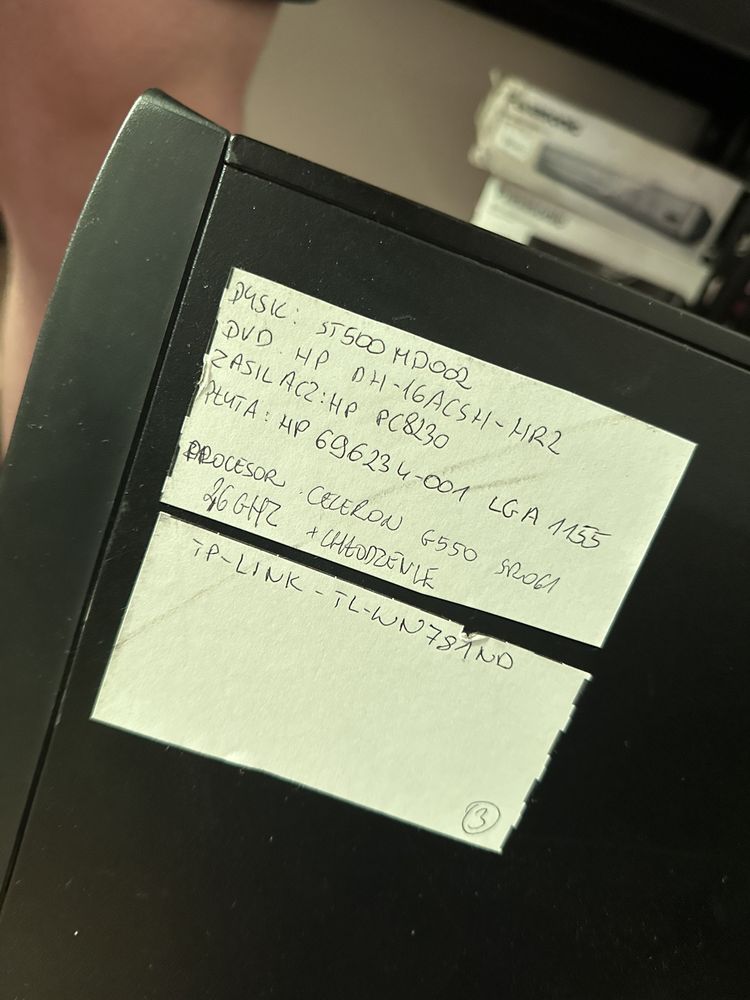 DYSK: ST500MD002
DVD HP DH-16ACSH-HR2
ZASILACZ: HP PC8230
PŁYTA: HP 696234-001 LGA 1155
PROCESOR CELERON G550 SR061
2,6GHZ + CHŁODZENIE
TP-LINK-TL-WN781ND
3
Panasonic
Panasonic